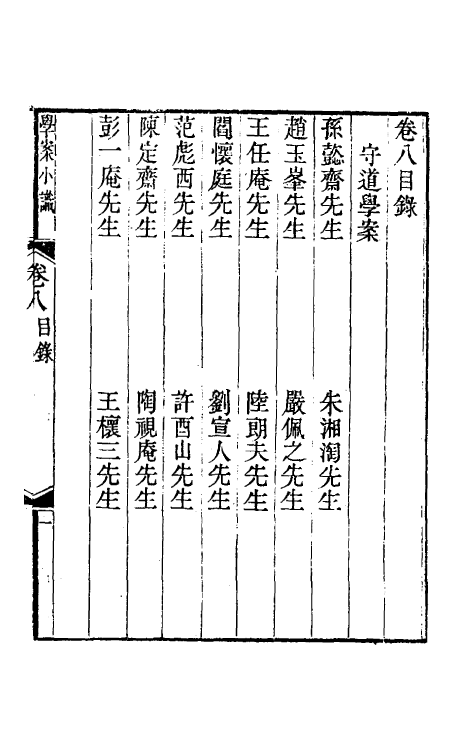 卷八目錄
守道學案
孫懿齋先生
朱湘淘先生
趙玉峯先生
嚴佩之先生
王任庵先生
陸朗夫先生
閻懷庭先生
劉宣人先生
范彪西先生
許酉山先生
陳定齋先生
陶視庵先生
彭一庵先生
王欀三先生
學案小識
卷八目錄
一